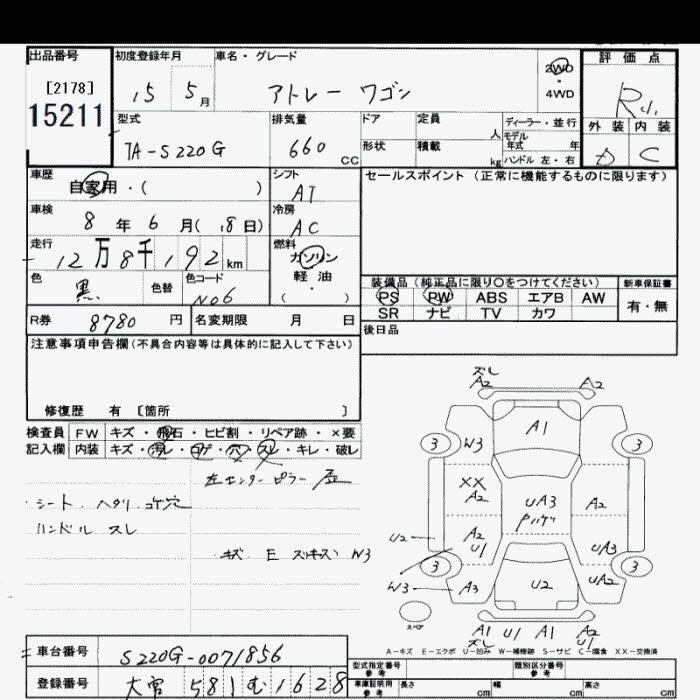 出品番号
[2178]
15211
初度登録年月
15 5月
車名・グレード
アトレー ワゴン
2WD
・
4WD
評価点
外装 内装
D C
型式
TA-S220G
排気量
660 CC
ドア
定員 人
形状
積載 kg
ディーラー・並行
モデル年式 年
ハンドル 左・右
車歴
自家用・( )
シフト
AT
車検
8年6月(18日)
冷房
AC
走行
12万8千192km
燃料
ガソリン
軽油
・
( )
色
黒
色替
色コード
N06
セールスポイント (正常に機能するものに限ります)
装備品(純正品に限り○をつけてください)
新車保証書
PS PW ABS エアB AW
有・無
SR ナビ TV カワ
R券 8780円
名変期限 月 日
後日品
注意事項申告欄(不具合内容等は具体的に記入して下さい)
修復歴 有 [箇所 ]
検査員 FW キズ・飛石・ヒビ割・リペア跡・×要
記入欄 内装 キズ・汚レ・コゲ・穴・スレ・キレ・破レ
左センターピラー
シート ヘタリ コゲ穴
ハンドル スレ
キズ E W3
ズレ
A2 A2
A1
3 W3 3
XX
A2
UA3
A2
U2
A2
U1
UA3
3 3
W3 A3 U2 UA2
スペア
A1 U1 A1 A2
ズレ U1
A-キズ E-エクボ U-凹み W-補修跡 S-サビ C-腐食 XX-交換済
車台番号 S220G-0071856
登録番号 大宮 581 む 1628
型式指定番号
参考
類別区分番号
参考
車庫証明用
参考
長さ cm
幅 cm
高さ cm